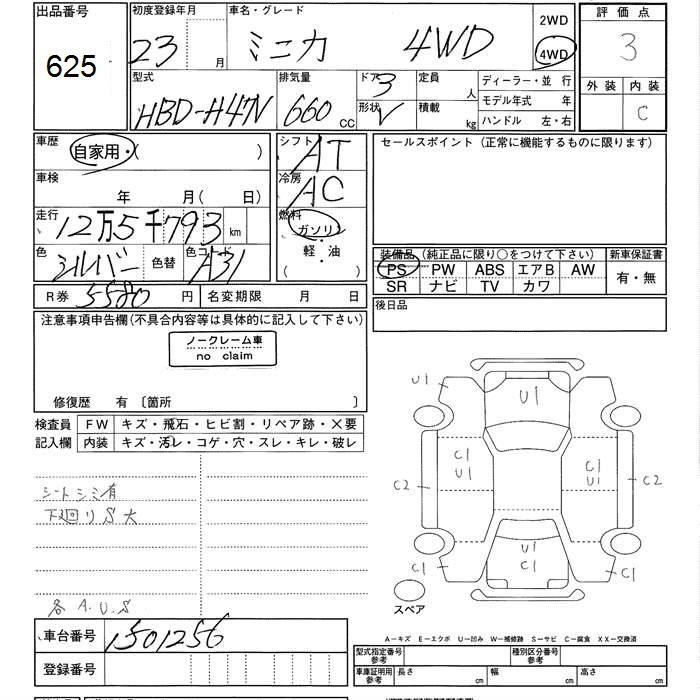 出品番号 初度登録年月 車名・グレード 2WD 評価点
625 23 月 ミニカ 4WD 4WD 3
型式 排気量 ドア 3 定員 人 ディーラー・並 行 外装 内装
HBD-H47V 660 CC 形状 V 積載 kg モデル年式 年 C
ハンドル 左・右
車歴 自家用・( ) シフト AT セールスポイント (正常に機能するものに限ります)
車検 年 月 ( 日) 冷房 AC
走行 12万5千793 km 燃料 ガソリン
色 シルバー 色替 色コード A31 軽・油 ( )
装備品 (純正品に限り○をつけて下さい) 新車保証書
PS PW ABS エアB AW 有・無
SR ナビ TV カワ
R券 5580 円 名変期限 月 日 後日品
注意事項申告欄(不具合内容等は具体的に記入して下さい)
ノークレーム車
no claim
修復歴 有 〔箇所 〕
検査員 FW キズ・飛石・ヒビ割・リペア跡・×要
記入欄 内装 キズ・汚レ・コゲ・穴・スレ・キレ・破レ
U1 U1
C1 U1 C1 U1
C2 C2
シートシミ有
下廻りS大
U1 C1
C1 C1
各A.U.S
スペア
車台番号 1501256
A-キズ E-エクボ U-凹み W-補修跡 S-サビ C-腐食 XX-交換済
登録番号
型式指定番号 参考 種別区分番号 参考
車庫証明用 参考 長さ cm 幅 cm 高さ cm